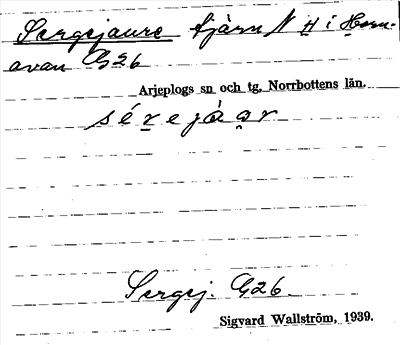 Sergejaure tjärn N H i Horn-
avan G26
Arjeplogs sn och tg, Norrbottens län.
sérejàǫr
Sergej. G26.
Sigvard Wallström, 1939.